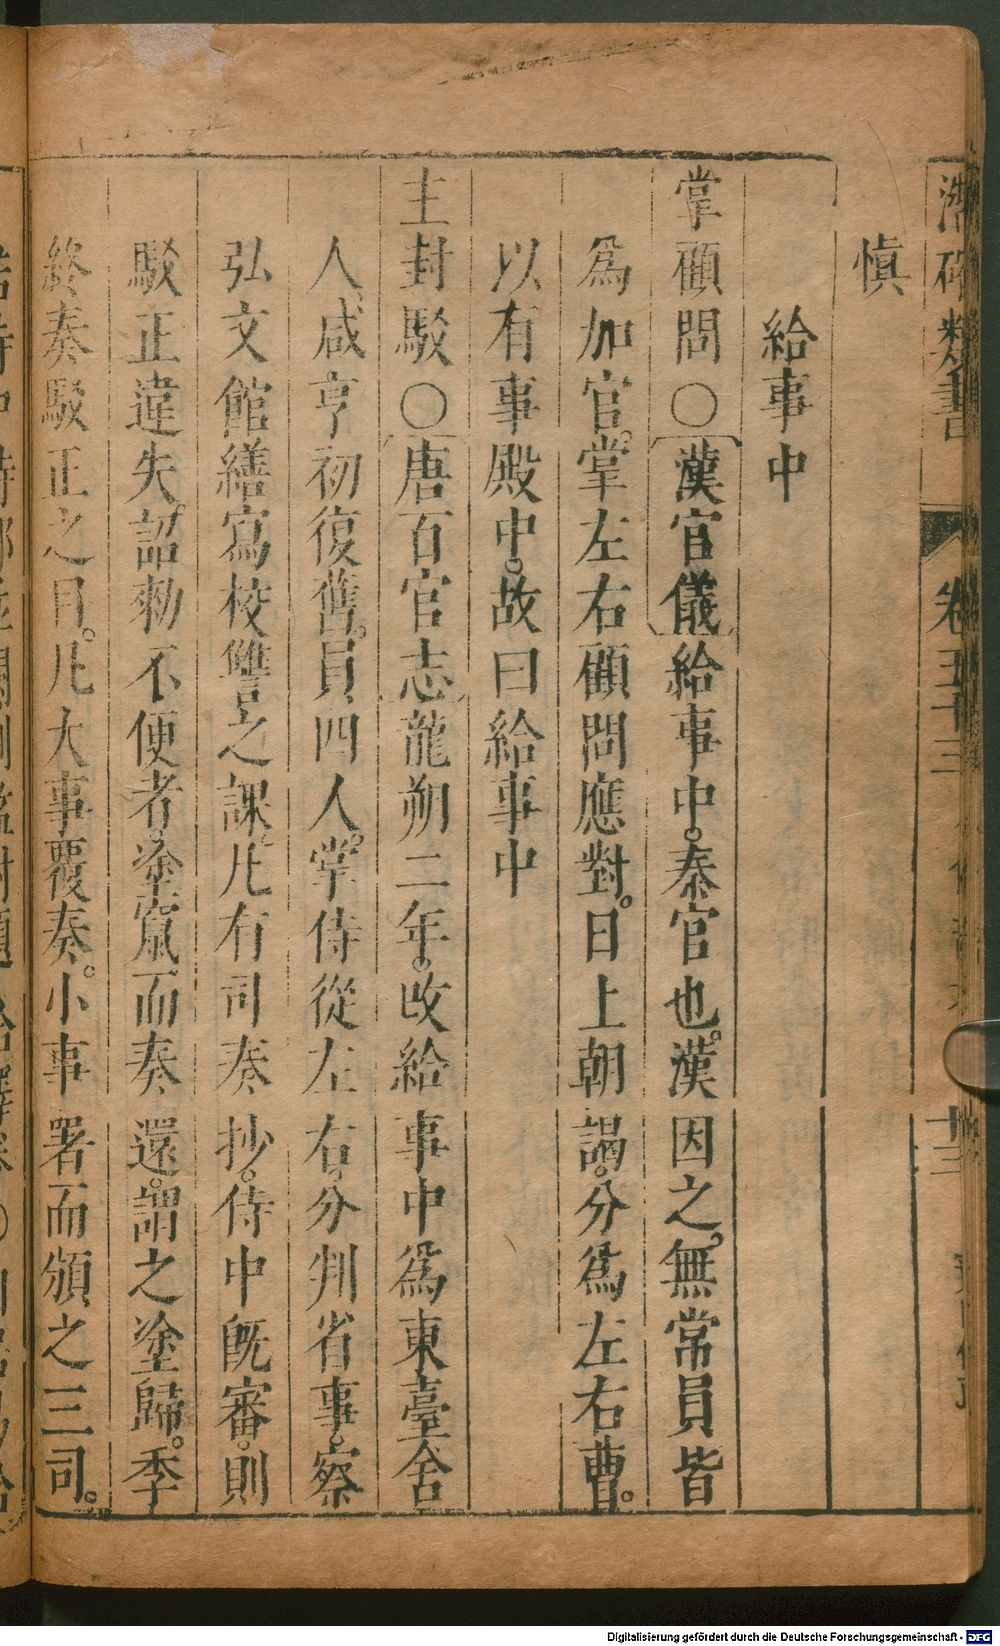 潛確類書 卷五十三 十三
愼
給事中
掌顧問○漢官儀給事中。秦官也。漢因之。無常員皆
爲加官。掌左右顧問應對。日上朝謁。分爲左右曹。
以有事殿中。故曰給事中
主封駁○唐百官志龍朔二年。改給事中爲東臺舍
人。咸亨初復舊。員四人。掌侍從左右。分判省事。察
弘文館繕寫校讐之課。凡有司奏抄。侍中旣審。則
駁正違失。詔勑不便者。塗竄而奏還。謂之塗歸。季
終奏駁正之目。凡大事覆奏。小事署而頒之三司。
Digitalisierung gefördert durch die Deutsche Forschungsgemeinschaft - DFG